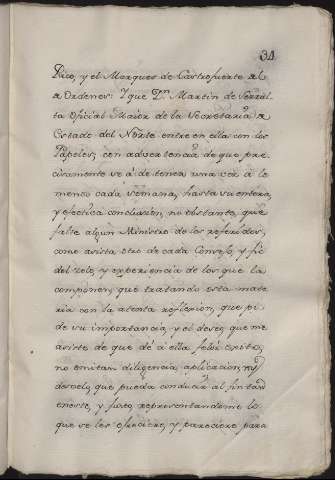 34
Rico, y el Marques de Castrofuerte al
a Ordenes: Y que Dn. Martin de
ta Oficial Maior de la Secretaria a
Estado del Norte entre en ella con los
Papeles, con advertencia de que pre
cisamente se á de tener una vez á lo
menos cada semana, hasta su entera,
y efectiva conclusion, no obstante, que
falte algun Ministro de los referidos,
como asista otro de cada Consejo, y fio
del zelo, y experiencia de los que la
componen, que tratando esta mate
ria con la atenta reflexion, que pi
de su importancia, y el deseo, que me
asiste de que dé á ella feliz exito,
no omitan diligencia, aplicacion, ni
desvelo, que pueda conducir al fin tan
 y justo, representandome lo
que se les ofreciere, y pareciere para